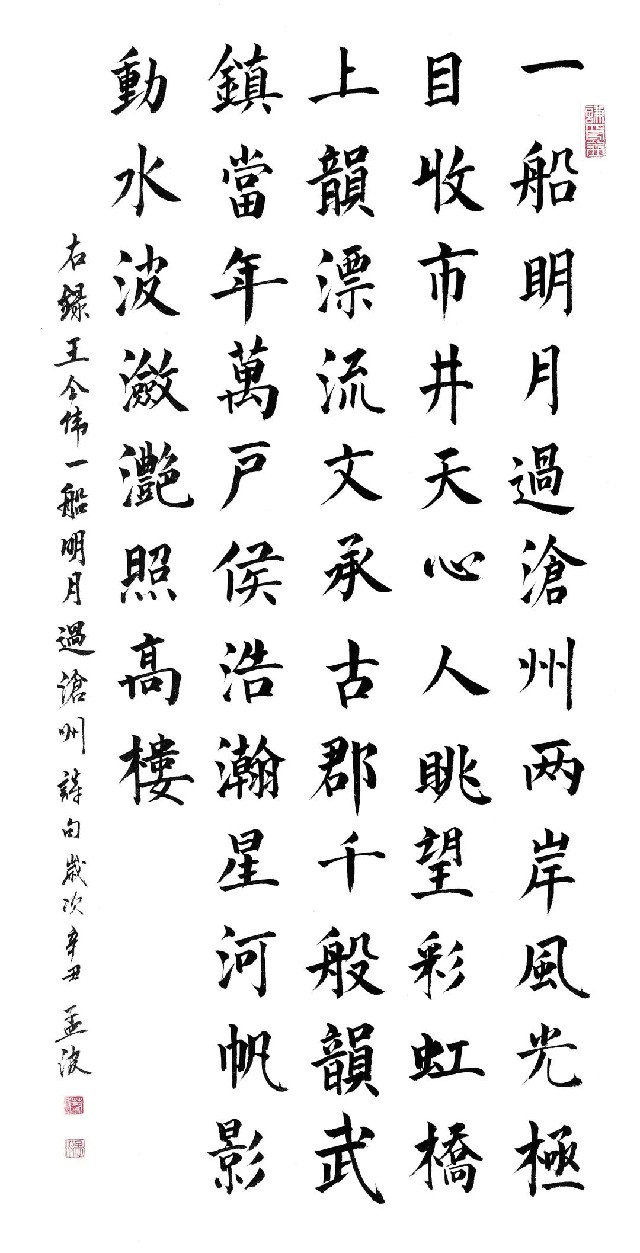 一船明月過滄州两岸風光極
目收市井天心人眺望彩虹橋
上韻漂流文承古郡千般韻武
鎮當年萬戸侯浩瀚星河帆影
動水波瀲灧照高樓
右録王令偉一船明月過滄州詩句歲次辛丑孟波